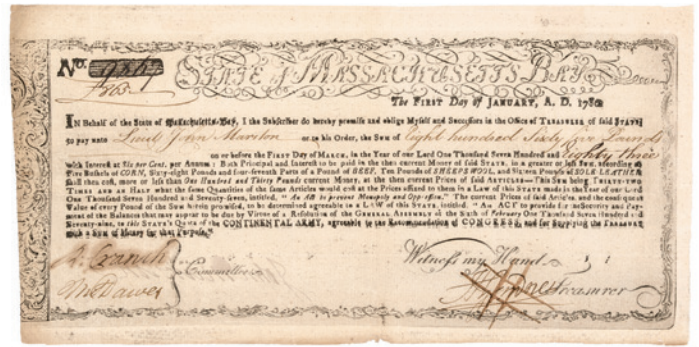 No. 9567
£865
STATE of MASSACHUSETTS BAY
The FIRST Day of JANUARY, A. D. 1780
IN Behalf of the State of Massachusetts-Bay, I the Subscriber do hereby promise and oblige Myself and Successors in the Office of TREASURER of said STATE,
to pay unto Lieut John Marston or to his Order, the Sum of Eight hundred Sixty five Pounds
on or before the FIRST Day of MARCH, in the Year of our Lord One Thousand Seven Hundred and Eighty three
with Interest at Six per Cent. per Annum: Both Principal and Interest to be paid in the then current Money of said STATE, in a greater or less SUM, according as
Five Bushels of CORN, Sixty-eight Pounds and four-seventh Parts of a Pound of BEEF, Ten Pounds of SHEEPSWOOL, and Sixteen Pounds of SOLE LEATHER
shall then cost, more or less than One Hundred and Thirty Pounds current Money, at the then current Prices of said ARTICLES—This SUM being THIRTY-TWO
TIMES AND AN HALF what the same Quantities of the same Articles would cost at the Prices affixed to them in a Law of this STATE made in the Year of our Lord
One Thousand Seven Hundred and Seventy-seven, intitled, "An ACT to prevent Monopoly and Oppression." The current Prices of said Articles, and the consequent
Value of every Pound of the Sum herein promised, to be determined agreeable to a LAW of this STATE, intitled, "An ACT to provide for the Security and Pay-
ment of the Balances that may appear to be due by Virtue of a Resolution of the GENERAL ASSEMBLY of the Sixth of February One Thousand Seven Hundred and
Seventy-nine, to this STATE's Quota of the CONTINENTAL ARMY, agreeable to the Recommendation of CONGRESS, and for Supplying the TREASURY
with a Sum of Money for that Purpose."
R. Cranch
Witness my Hand
Committee
Treasurer
Dawes